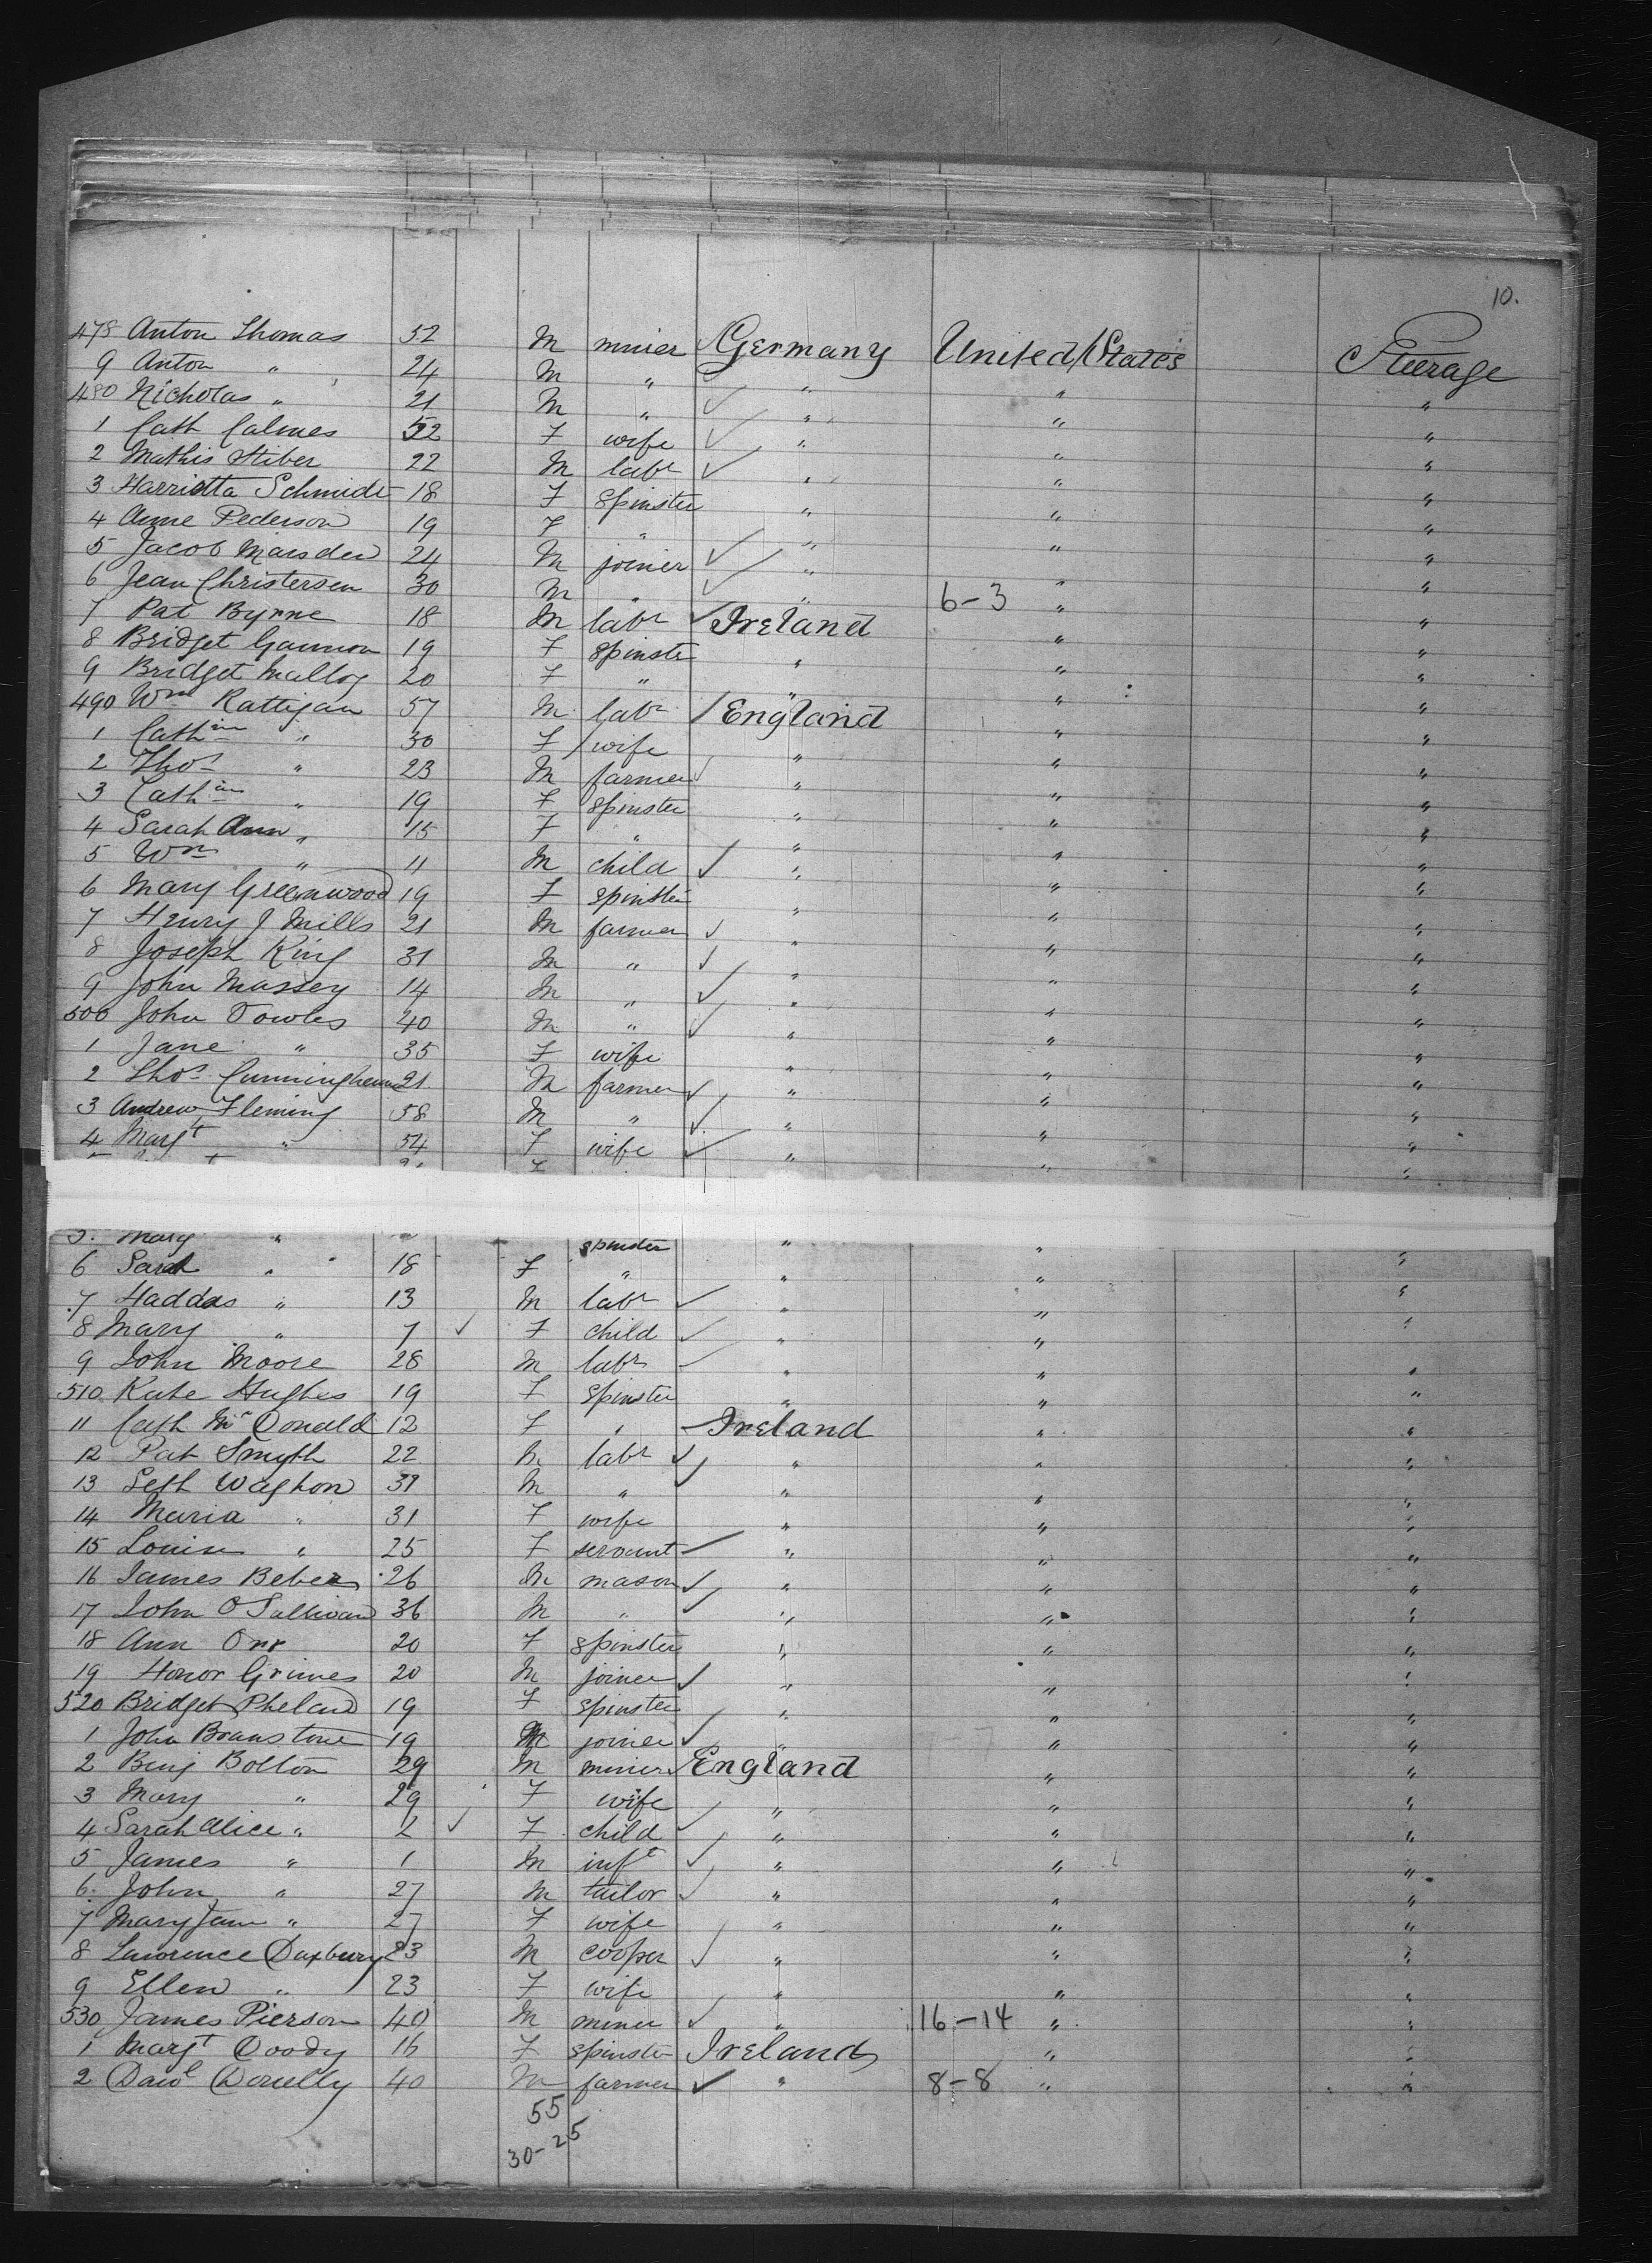 10.
478 Anton Thomas 52 M miner Germany United States Steerage
9 Anton " 24 M " " " "
480 Nicholas " 21 M " " " "
1 Cath Calmes 52 F wife " " "
2 Mathis Stiber 22 M labr " " "
3 Harrietta Schmidt 18 F Spinster " " "
4 Anne Pederson 19 F " " " "
5 Jacob Marsden 24 M joiner " " "
6 Jean Christersen 30 M " " 6-3 " "
7 Pat Byrne 18 M labr Ireland " "
8 Bridget Gannon 19 F Spinster " " "
9 Bridget Malloy 20 F " " " "
490 Wm Rattigan 57 M labr England " "
1 Cathin " 30 F wife " " "
2 Thos " 23 M farmer " " "
3 Cathin " 19 F spinster " " "
4 Sarah Ann " 15 F " " " "
5 Wm " 11 M child " " "
6 Mary Greenwood 19 F spinster " " "
7 Henry J Mills 21 M farmer " " "
8 Joseph King 31 M " " " "
9 John Massey 14 M " " " "
500 John Towles 40 M " " " "
1 Jane " 35 F wife " " "
2 Thos Cunningham 21 M farmer " " "
3 Andrew Fleming 58 M " " " "
4 Margt " 54 F wife " " "
5. Mary " spinster " " "
6 Sarah " 18 F " " " "
7 Haddas " 13 M labr " " "
8 Mary " 7 F child " " "
9 John Moore 28 M labr " " "
510 Kate Hughes 19 F Spinster " " "
11 Cath McDonald 12 F " Ireland " "
12 Pat Smyth 22 M labr " " "
13 Seth Waghon 31 M " " " "
14 Maria " 31 F wife " " "
15 Louisa " 25 F servant " " "
16 James Beber 26 M mason " " "
17 John O'Sullivan 36 M " " " "
18 Ann Orr 20 F spinster " " "
19 Honor Grimes 20 M joiner " " "
520 Bridget Phelan 19 F spinster " " "
1 John Branstone 19 M joiner " " "
2 Benj Bolton 29 M miner England " "
3 Mary " 29 F wife " " "
4 Sarah Alice " 2 F child " " "
5 James " 1 M inft " " "
6 John " 27 M tailor " " "
7 Mary Jane " 27 F wife " " "
8 Lawrence Duxbury 23 M cooper " " "
9 Ellen " 23 F wife " " "
530 James Pierson 40 M miner " 16-14 " "
1 Margt Doody 16 F spinster Ireland " "
2 Danl Donelly 40 M farmer " 8-8 " "
55
30-25